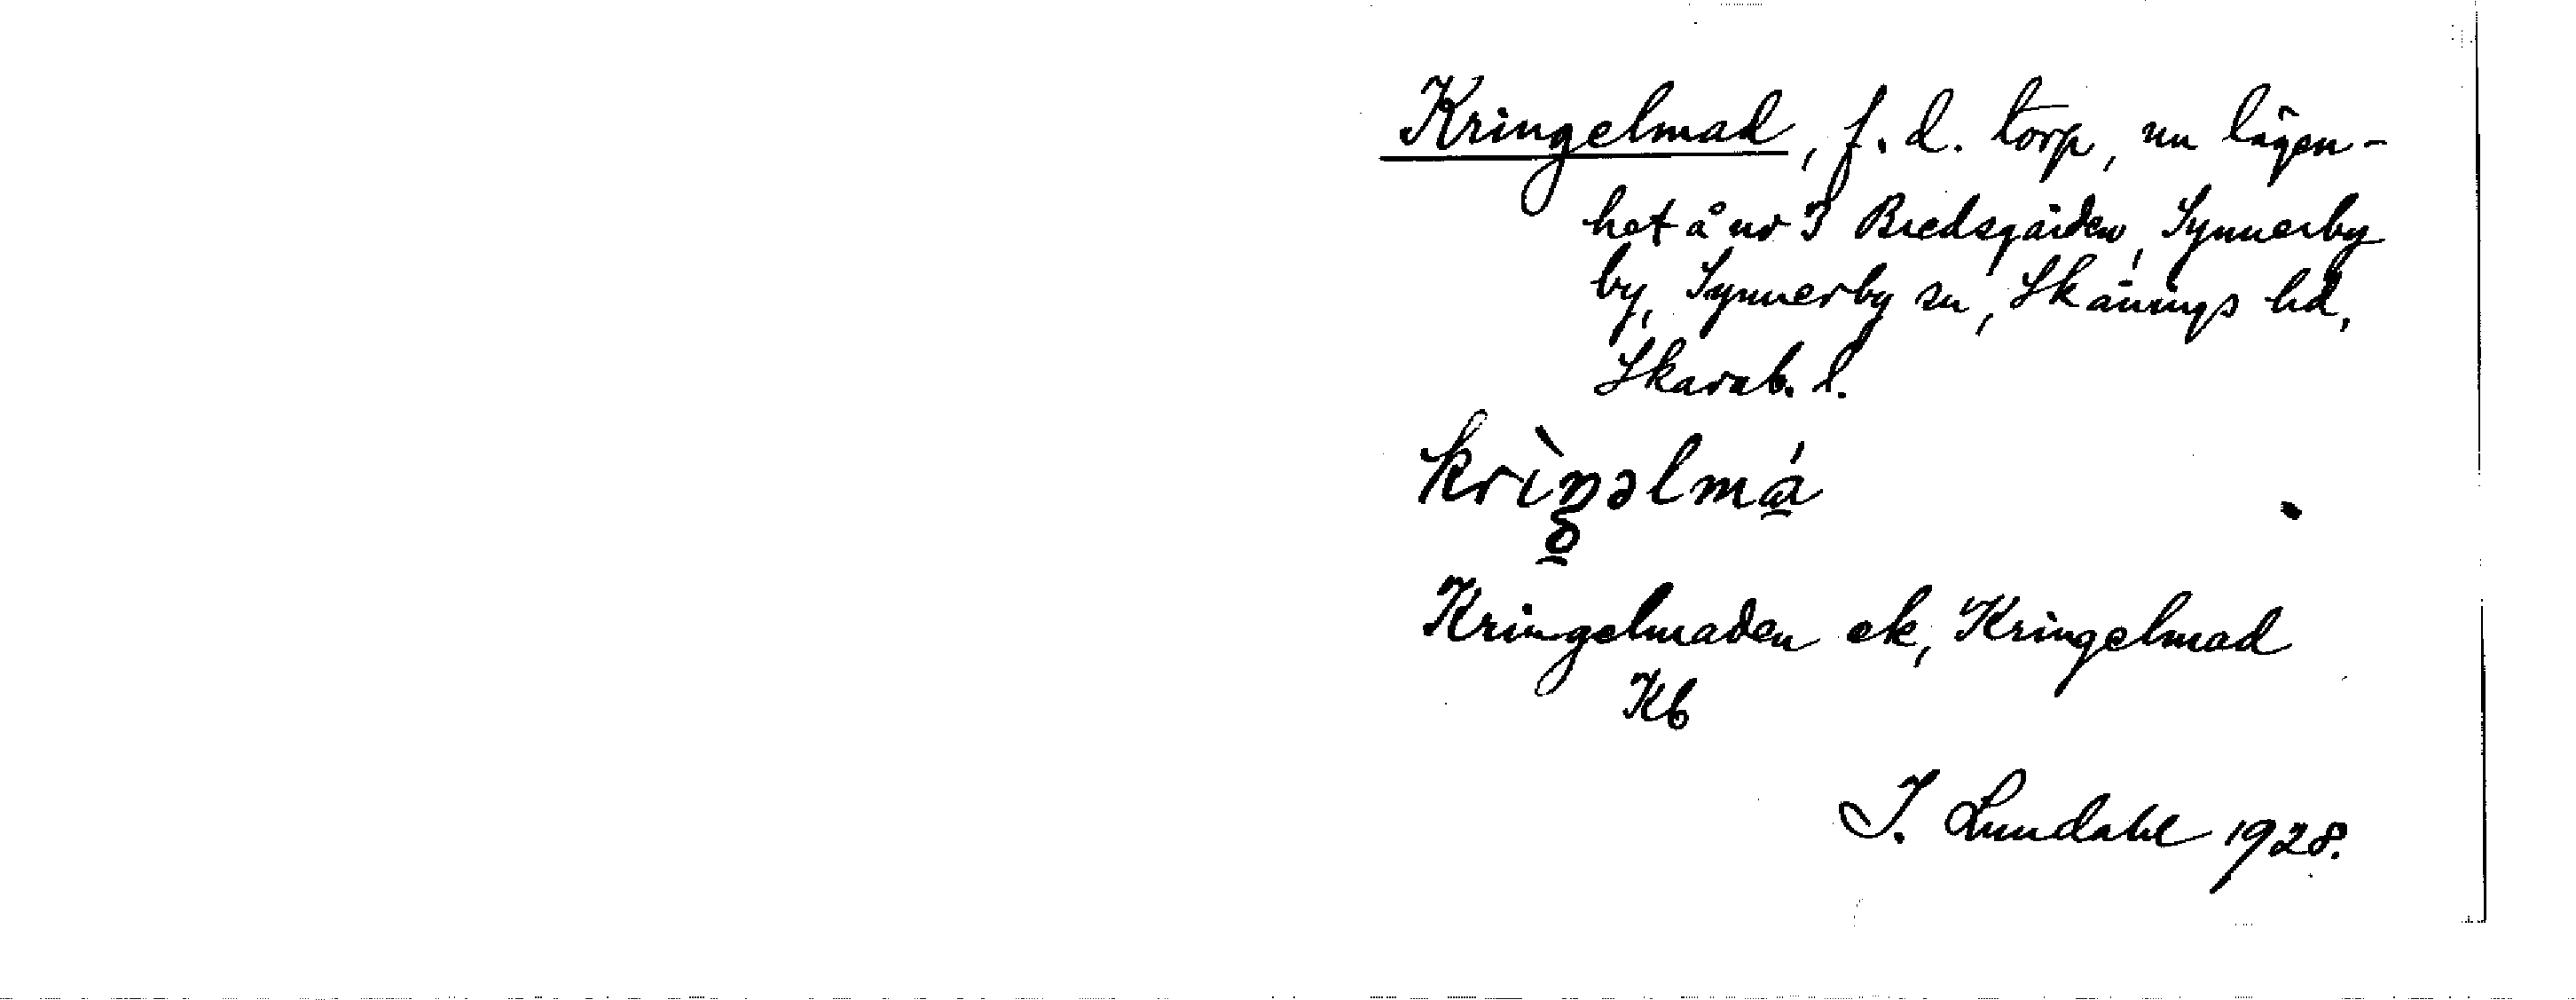 Kringelmad, f. d. torp, nu lägen-
het å nr 3 Bredsgården, Synnerby
by, Synnerby sn, Skånings hd,
Skarab. l.
krìŋəlmá
Kringelmaden ek, Kringelmad
Kb
I. Lundahl 1928.